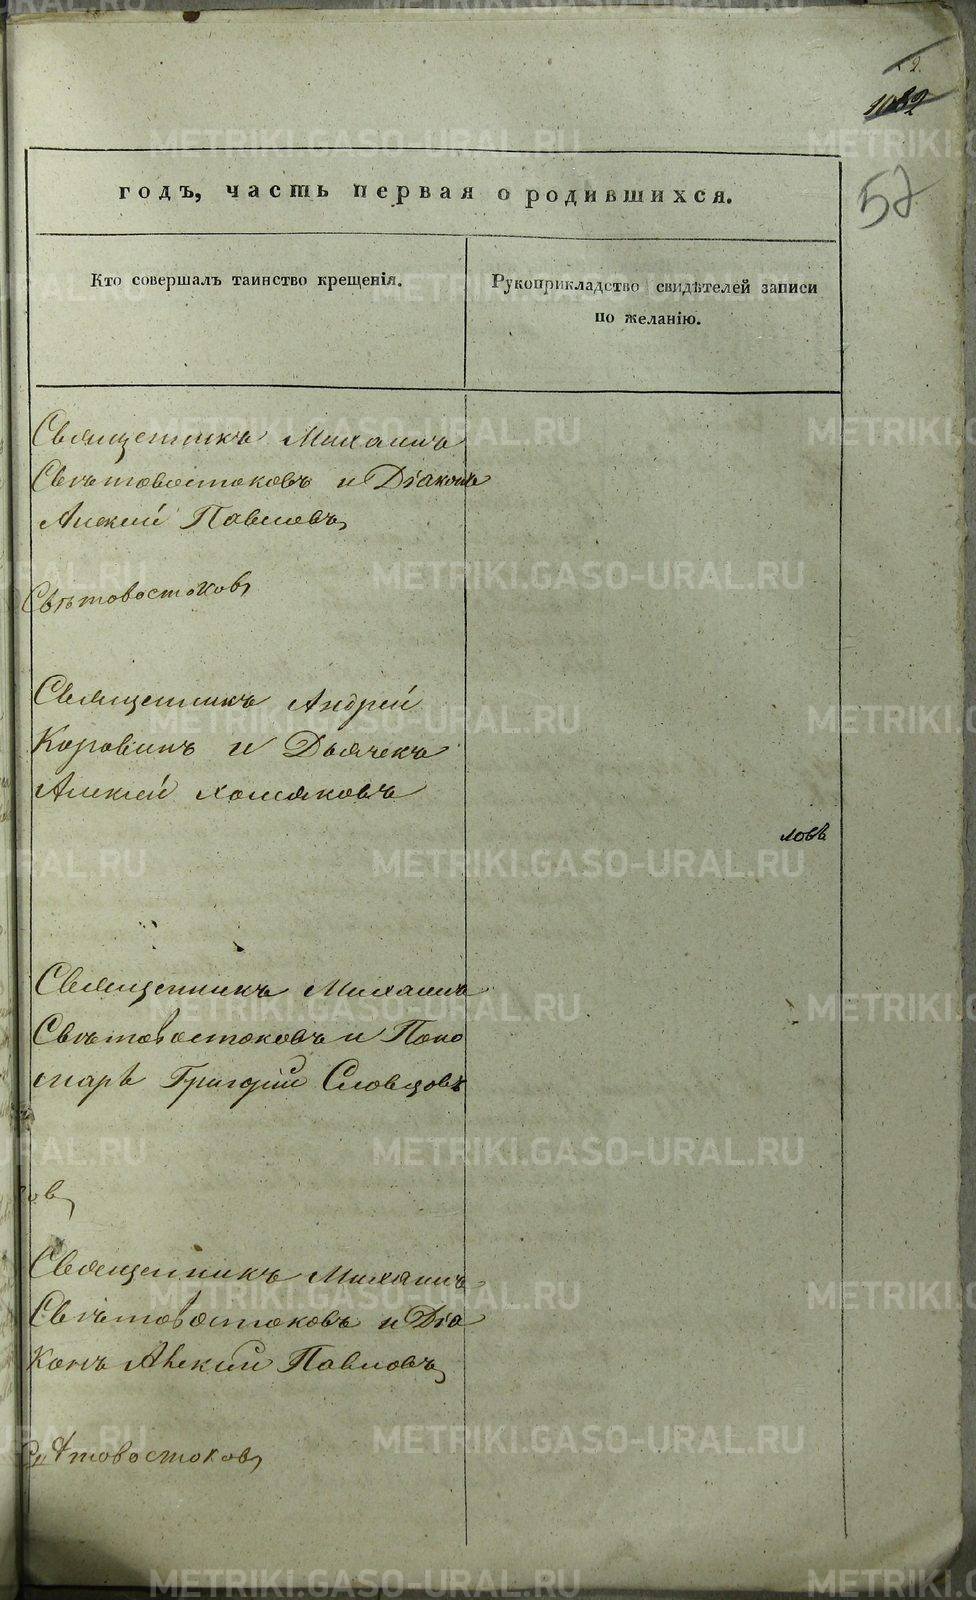 1082
57
годъ, часть первая о родившихся.
Кто совершалъ таинство крещенія.
Рукоприкладство свидѣтелей записи
по желанію.
Священникъ Михаилъ
Свѣтовостоковъ и Діаконъ
Алексій Павловъ
Свѣтовостоковъ
Священникъ Андрей
Коровинъ и Дьячекъ
Алексій Хомяковъ
ловъ
Священникъ Михаилъ
Свѣтовостоковъ и Поно
марь Григорій Словцовъ
овъ
Священникъ Михаилъ
Свѣтовостоковъ и Діа
конъ Алексій Павловъ
Свѣтовостоковъ
METRIKI.GASO-URAL.RU